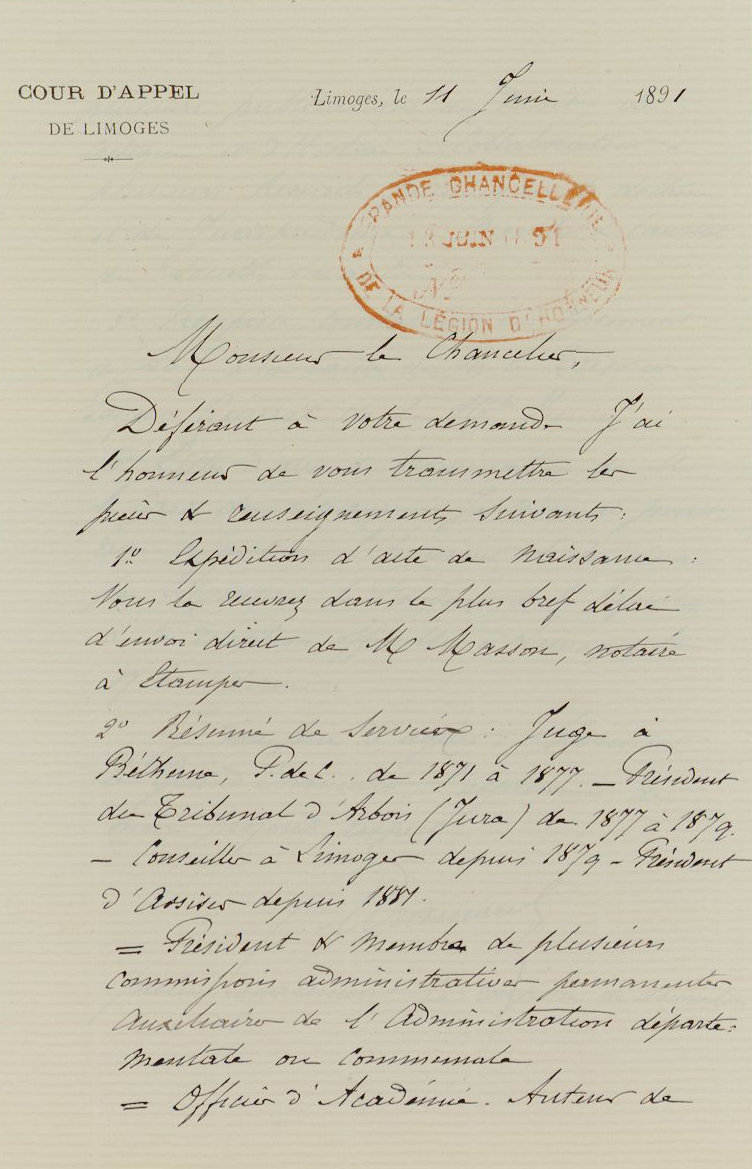 COUR D'APPEL
DE LIMOGES
Limoges, le 11 Juin 1891
GRANDE CHANCELLERIE
13 JUIN 1891
DE LA LÉGION D'HONNEUR
Monsieur le Chancelier,
Déférant à votre demande J'ai
l'honneur de vous transmettre les
pièces & renseignements suivants:
1º Expédition d'acte de naissance :
Vous la recevrez dans le plus bref délai
d'envoi direct de M Masson, notaire
à Etampes.
2º Résumé de services : Juge à
Béthune, P. de C. . de 1871 à 1877. — Président
du Tribunal d'Arbois (Jura) de 1877 à 1879.
— Conseiller à Limoges depuis 1879 — Président
d'Assises depuis 1881.
= Président & membre de plusieurs
commissions administratives permanentes
auxiliaires de l'Administration départe-
mentale ou communale
= Officier d'Académie. Auteur de